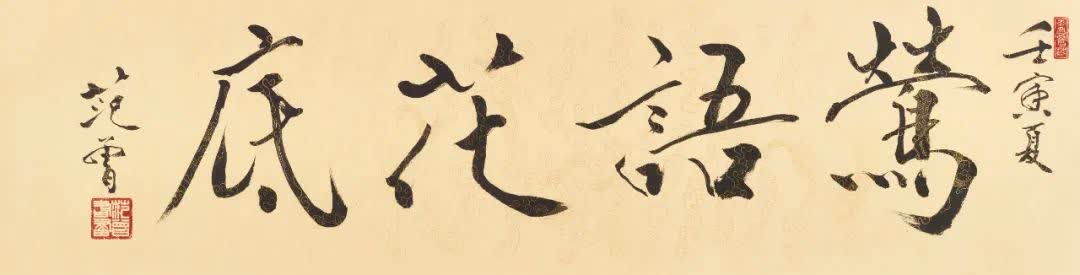 壬寅夏
鶯語花底
范曾